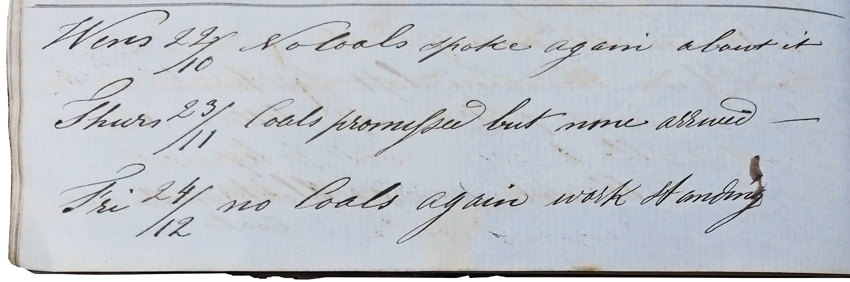 Wens 22/10 No Coals spoke again about it
Thurs 23/11 Coals promissed but none arrived —
Fri 24/12 no Coals again work standing